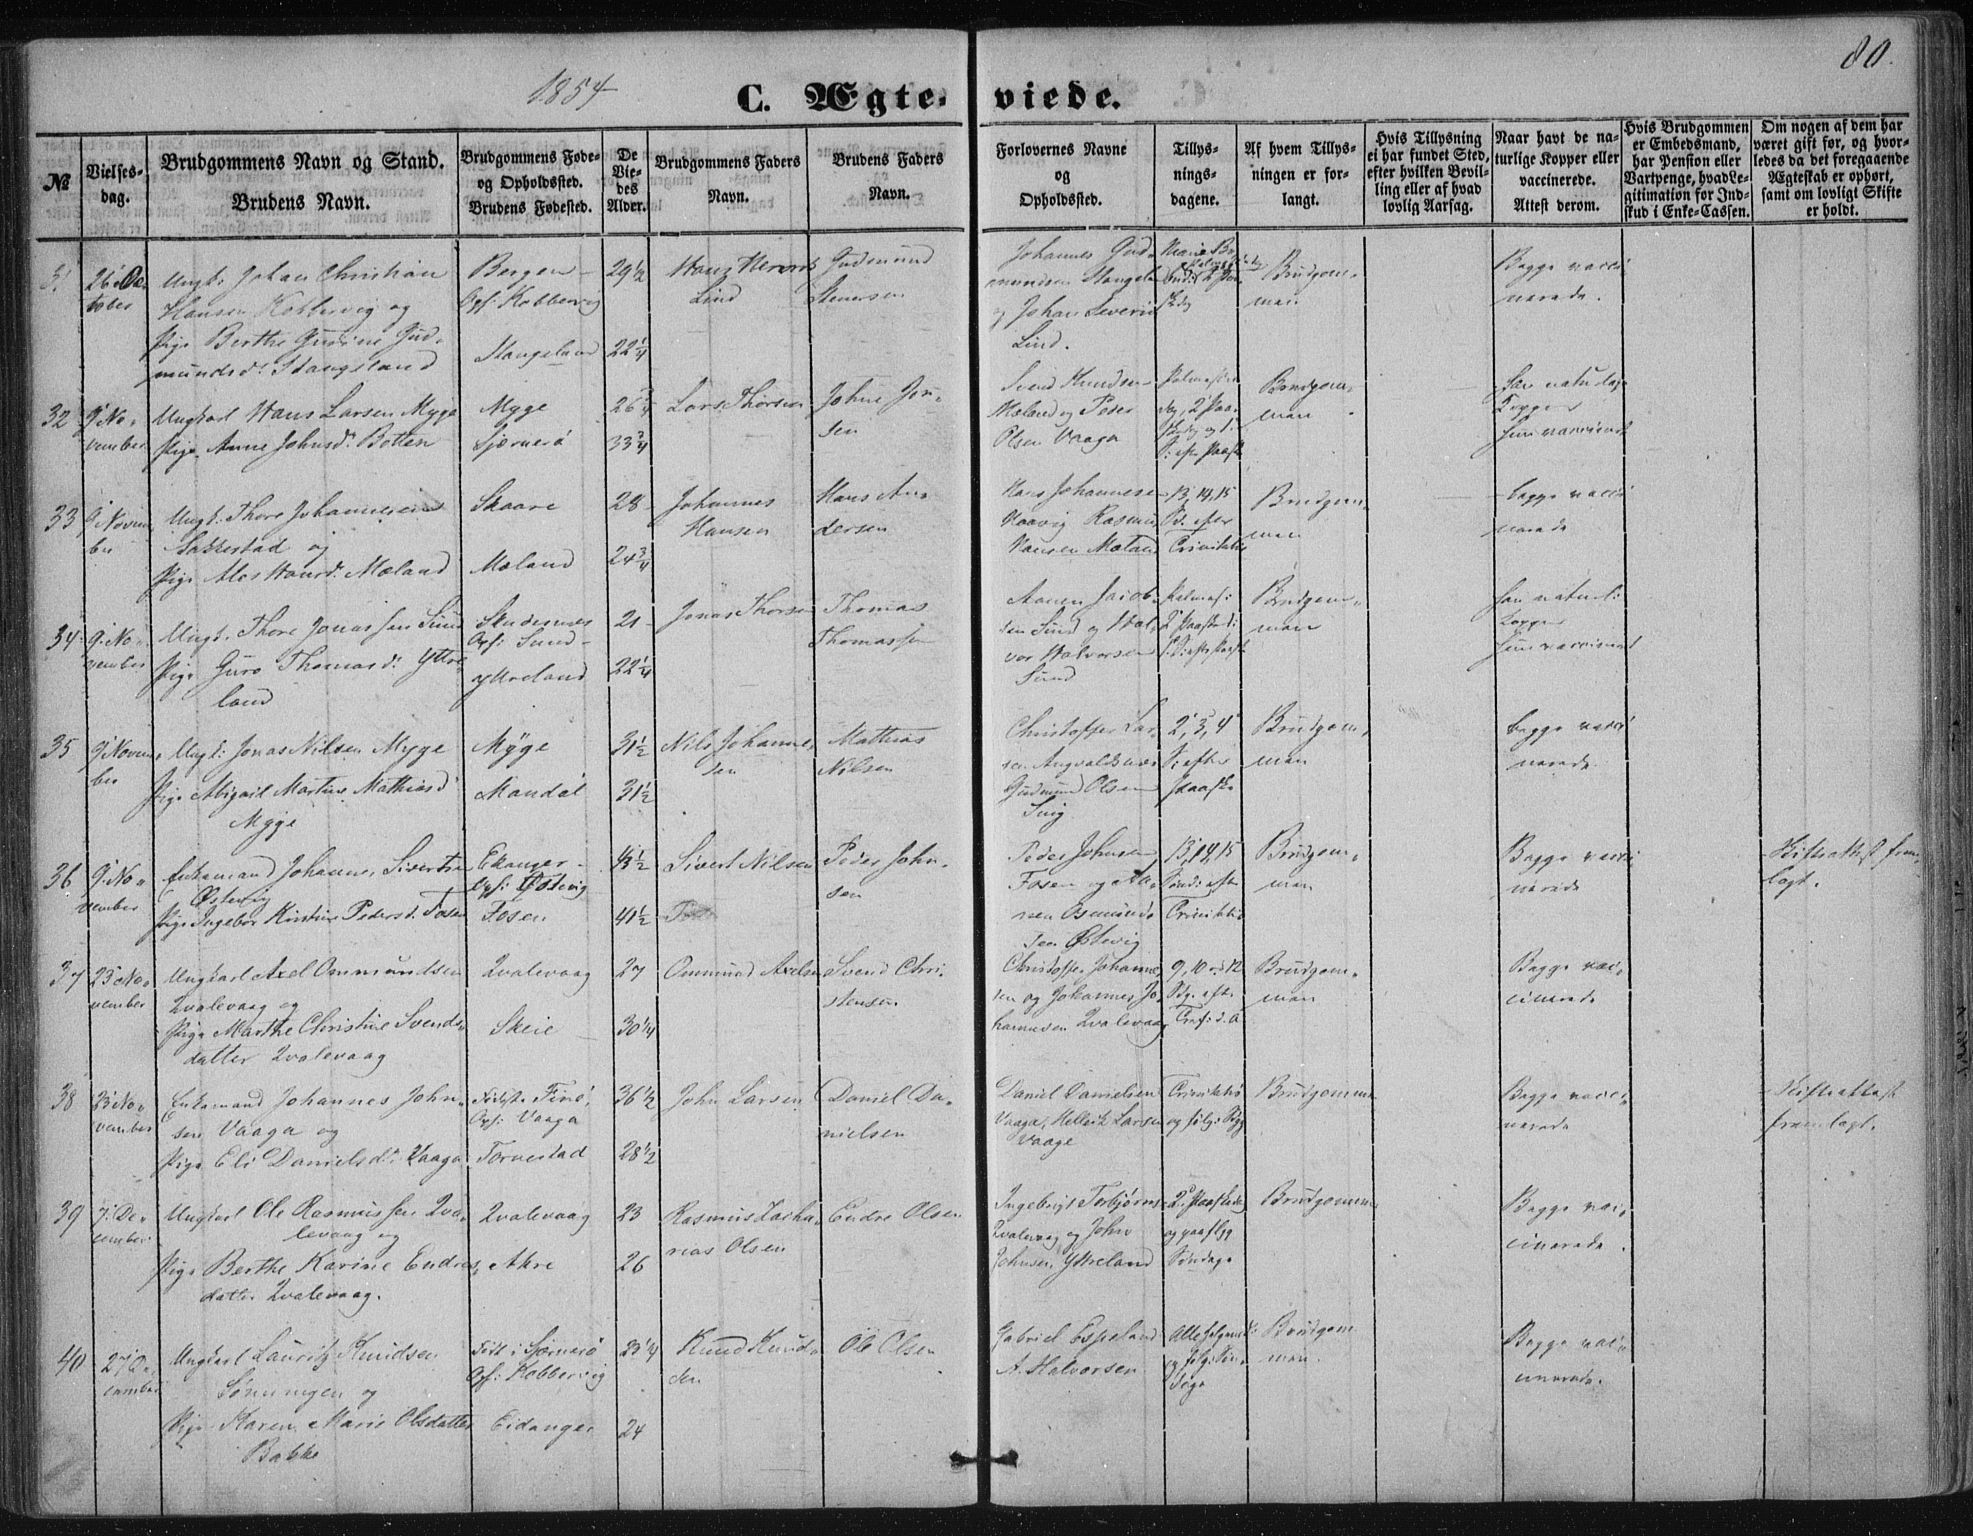 80.
1854
C. Ægte- viede.
№
Vielses-
dag.
Brudgommens Navn og Stand.
Brudens Navn.
Brudgommens Føde-
og Opholdssted.
Brudens Fødested.
De
Vie-
des
Alder.
Brudgommens Faders
Navn.
Brudens Faders
Navn.
Forlovernes Navne
og
Opholdssted.
Tillys-
nings-
dagene.
Af hvem Tillys-
ningen er for-
langt.
Hvis Tillysning
ei har fundet Sted,
efter hvilken Bevil-
ling eller af hvad
lovlig Aarsag.
Naar havt de na-
turlige Kopper eller
vaccinerede.
Attest derom.
Hvis Brudgommen
er Embedsmand,
har Pension eller
Vartpenge, hvad Le-
gitimation for Ind-
skud i Enke-Cassen.
Om nogen af dem har
været gift før, og hvor-
ledes da det foregaaende
Ægteskab er ophørt,
samt om lovligt Skifte
er holdt.
31
Ungk. Johan Christian
Hansen Kobbervig og
Pige Berthe Gurine Gud-
mundsd. Stangeland
Bergen
Opf: Kobbervig
Stangeland
29½
22¼
Lind
Gudmund
Stenersen
Johannes Gud-
mundsen Stangeland
og Johan Severin
Lind.
Brudgom-
men
Begge vacci-
nerede.
32
9' No-
vember
Ungkarl Hans Larsen Myge
Pige Anne Johnsd. Botten
Myge
Sjernerö
26¾
33¾
Lars Thorsen
Johne Jon-
sen
Svend Knudsen
Mæland og Peder
Olsen Vaaga
Brudgom-
men
han naturlige
Kopper
hun vaccineret
33
9' Novem-
ber
Ungk. Thore Johannesen
Sakkestad og
Pige Ales Hansd. Mæland
Skaare
Mæland
28
24¾
Johannes
Hansen
Hans An-
dersen
Hans Johannesen
Haavig Rasmus
Hansen Mæland
13, 14, 15
Sd. efter
Trinitatis
Brudgom-
men
begge vacci-
nerede
34
9' No-
vember
Ungk. Thore Jonassen Sund
Pige Guro Thomasd. Yttre-
land
Skudesnes
Opf: Sund
Yttreland
21
22¼
Jonas Thorsen
Thomas
Thomassen
Aanen Jacob-
sen Sund og Hal-
vor Halvorsen
Sund
Brudgom-
men
han naturl:
Kopper
hun vaccineret
35
9' Novem-
ber
Ungk: Jonas Nilsen Myge
Pige Abigail Martine Mathiasd
Myge
Myge
Mandal
31½
31½
Nils Johanne-
sen
Mathias
Nilsen
Christoffer Lar-
sen Augvaldsnæs
Gudmund Olsen
2, 3, 4
S: efter
Paaske
Brudgom-
men
begge vacci-
nerede
36
9' No-
vember
Enkemand Johannes Sivertsen
Østevig
Pige Ingebor Kirstine Pedersd. Fosen
Ekanger
Opf: Østevig
Fosen
41½
Sivert Nilsen
Peder John-
sen
Peder Johnsen
Fosen og Aa-
nen Osmund-
sen Østevig
13, 14, 15
Sønd: eft
Trinitatis
Brudgom-
men
Begge vacci-
nerede
Skifteattest frem-
lagt.
37
23' No-
vember
Ungkarl Axel Ommundsen
Qvalevaag og
Pige Marthe Christine Svends-
datter Qvalevaag
Qvalevaag
Skeie
27
30¼
Ommund Axelsen
Svend Chri-
stensen
Christoffer Johanne-
sen og Johannes Jo-
hannesen Qvalevaag
9, 10 og 12
Sdg. efter
Brudgom-
men
Begge vac-
cinerede
38
23' No-
vember
Enkemand Johannes John-
sen Vaaga og
Pige Eli Danielsd. Vaaga
Födest: Finö,
Opf: Vaaga
Torvestad
36½
28½
John Larsen
Daniel Da-
nielsen
Daniel Danielsen
Vaaga, Hellerik Larsen
Vaage
Trinitatis
og følg:
Brudgommen
Begge vacci-
nerede
Skifteattest
fremlagt.
39
7' De-
cember
Ungkarl Ole Rasmussen Qva-
levaag og
Pige Berthe Karine Endres-
datter Qvalevaag.
Qvalevaag
Akre
23
26
Rasmus Zacha-
rias Olsen
Endre Olsen
Ingebrigt Torbjørns
Qvalevaag og John
Johnsen Yttreland
og paaflg
Søndage
Brudgommen
Begge vac-
cinerede.
40
27' De-
cember
Ungkarl Lauritz Knudsen
Pige Karen Marie Olsdatter
Bakke
Född i Sjærnerö
Opf: Kobbervig
Eidanger
23¼
24
Knud Knud-
sen
Ole Olsen
Gabriel Espeland
A. Halvorsen
Brudgom-
men.
Begge vac-
cinerede.